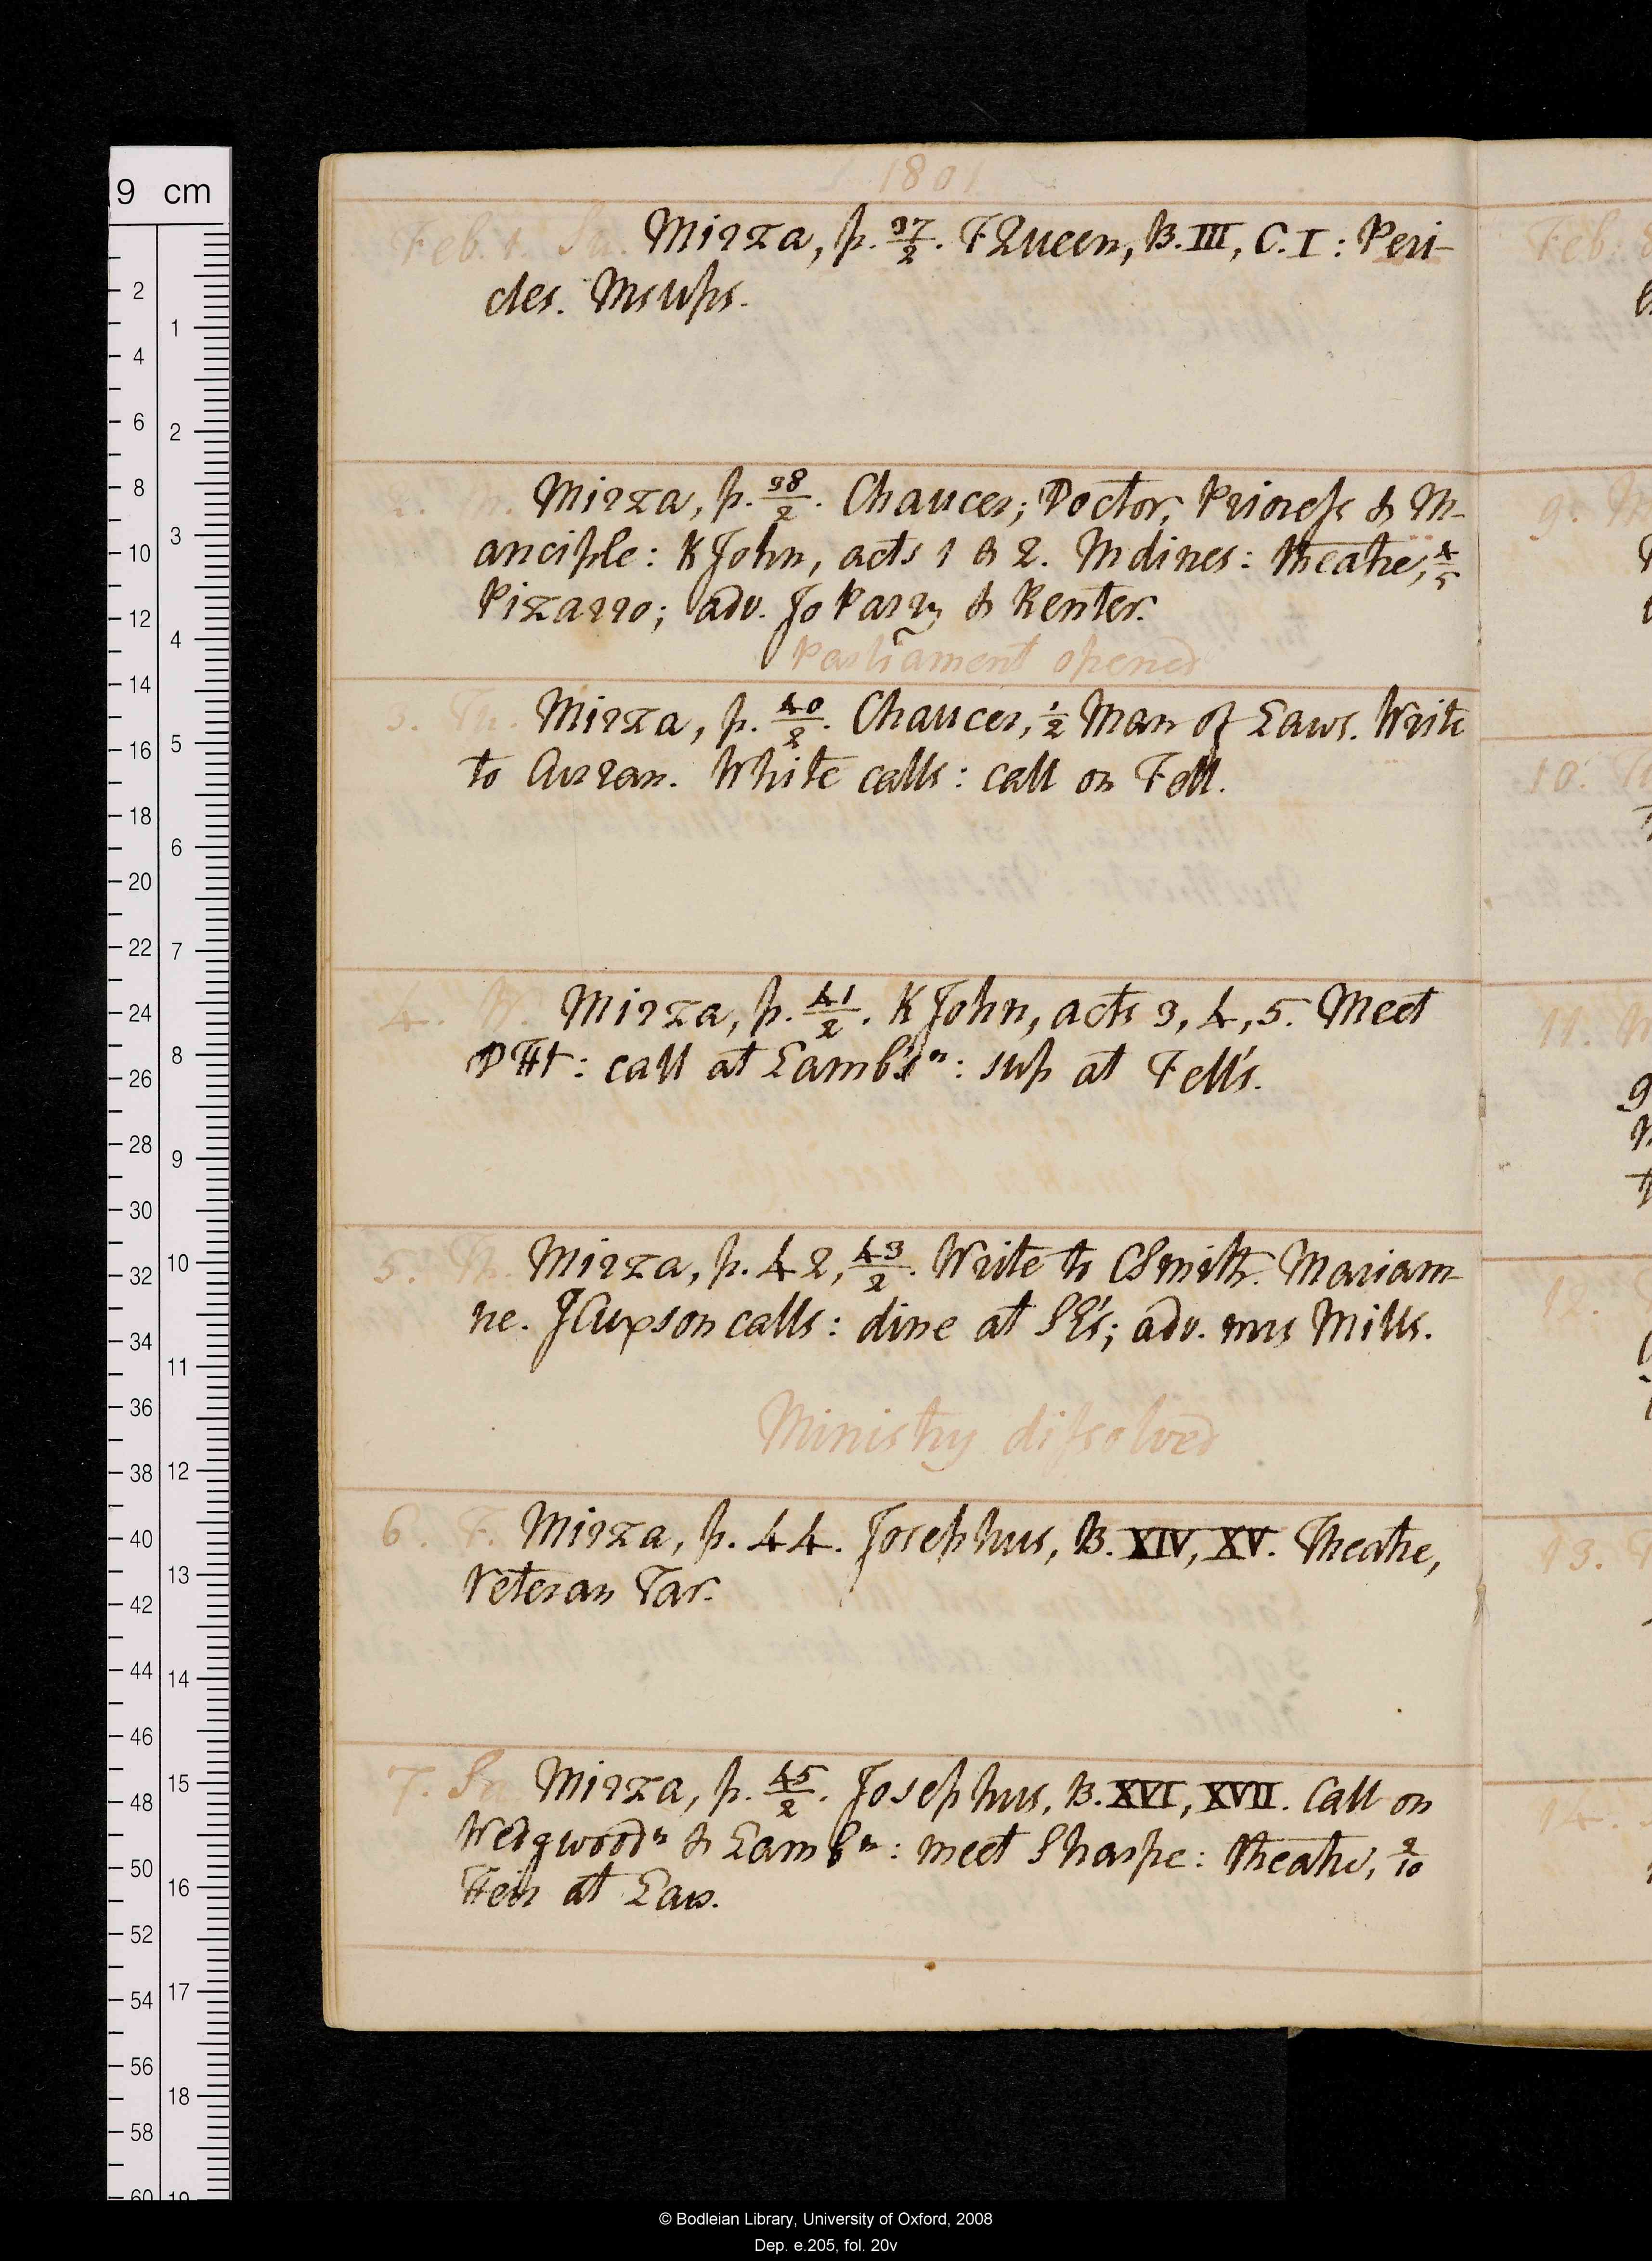 1801
Feb. 1. Su. Mirza, p. 37/2. FQueen, B. III, C. I: Peri-
cles. M sups.
2. M. Mirza, p. 38/2. Chaucer; Doctor, Prioress & M-
anciple: K John, acts 1 & 2. M dines: theatre, x/5
Pizarro; adv. Jo Parry & Renter.
Parliament opened
3. Tu. Mirza, p. 40/2. Chaucer, 1/2 Man of Laws. Write
to Curran. White calls: call on Fell.
4. W. Mirza, p. 41/2. K John, acts 3, 4, 5. Meet
PHt: call at Lamb's n: sup at Fell's.
5. Th. Mirza, p. 42, 43/2. Write to CSmith. Mariam-
ne. JCuxson calls: dine at SE's; adv. mrs Mills.
Ministry dissolved
6. F. Mirza, p. 44. Josephus, B. XIV, XV. Theatre,
Veteran Tar.
7. Sa Mirza, p. 45/2. Josephus, B. XVI, XVII. Call on
Wedgwood n & Lamb n: meet Sharpe: theatre, 2/10
Heir at Law.
Feb.
9.
10.
11.
12.
13.
14.
9 cm
2
4
6
8
10
12
14
16
18
20
22
24
26
28
30
32
34
36
38
40
42
44
46
48
50
52
54
56
58
60
1
2
3
4
5
6
7
8
9
10
11
12
13
14
15
16
17
18
19
© Bodleian Library, University of Oxford, 2008
Dep. e.205, fol. 20v